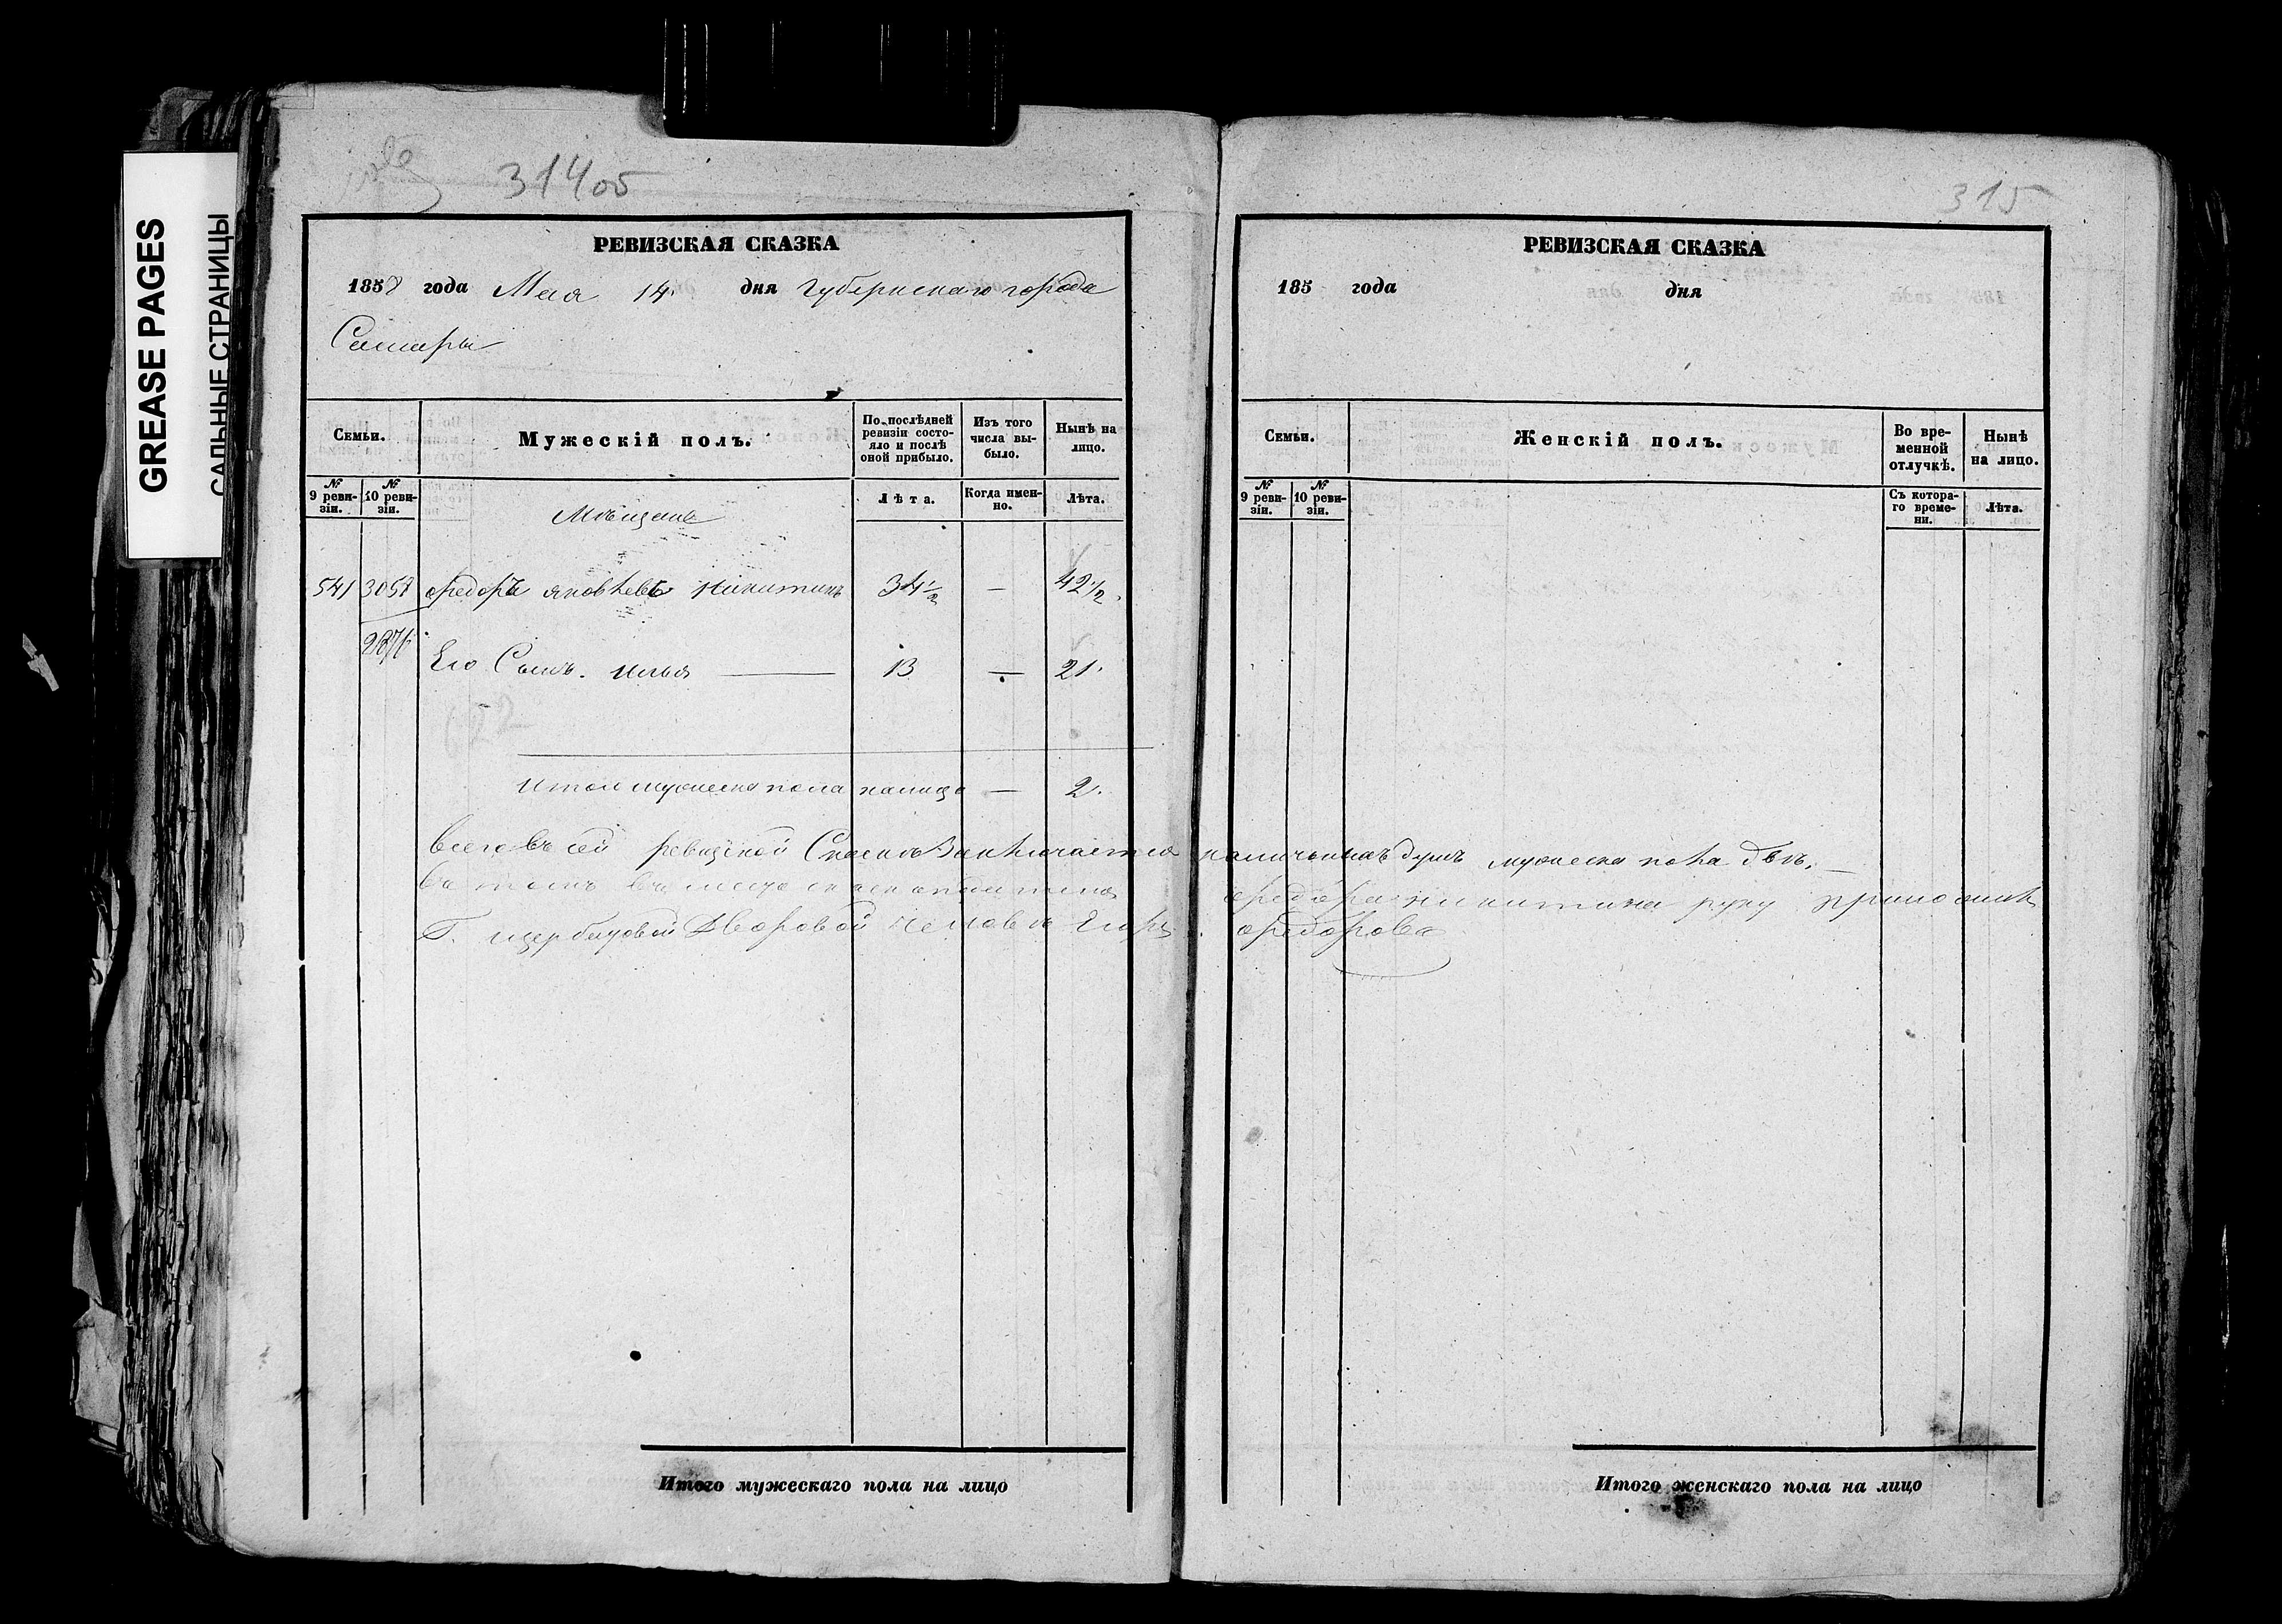 GREASE PAGES
САЛЬНЫЕ СТРАНИЦЫ
314 об
РЕВИЗСКАЯ СКАЗКА
1858 года Мая 14 дня Губернскаго города
Самары
Семьи.
Мужескій полъ.
По послѣдней ревизіи состояло и послѣ оной прибыло.
Изъ того числа выбыло.
Нынѣ на лицо.
№ 9 ревизіи.
№ 10 ревизіи.
Мѣщане
Лѣта.
Когда именно.
Лѣта.
541 3057 Федоръ Яковлевъ Никитинъ 34½ — 42½
2876
Его Сынъ. Илья — 13 — 21.
622
Итого мужеска пола налицо — 2.
Всего въ сей ревизской Сказкѣ Заключается наличныхъ душъ мужеска пола двѣ. —
Федора Никитина руку приложилъ
Г. Дворовой человекъ Егоръ Федоровъ
Итого мужескаго пола на лицо
315
РЕВИЗСКАЯ СКАЗКА
185 года дня
Семьи.
Женскій полъ.
Во временной отлучкѣ.
Нынѣ на лицо.
№ 9 ревизіи.
№ 10 ревизіи.
Съ котораго времени.
Лѣта.
Итого женскаго пола на лицо